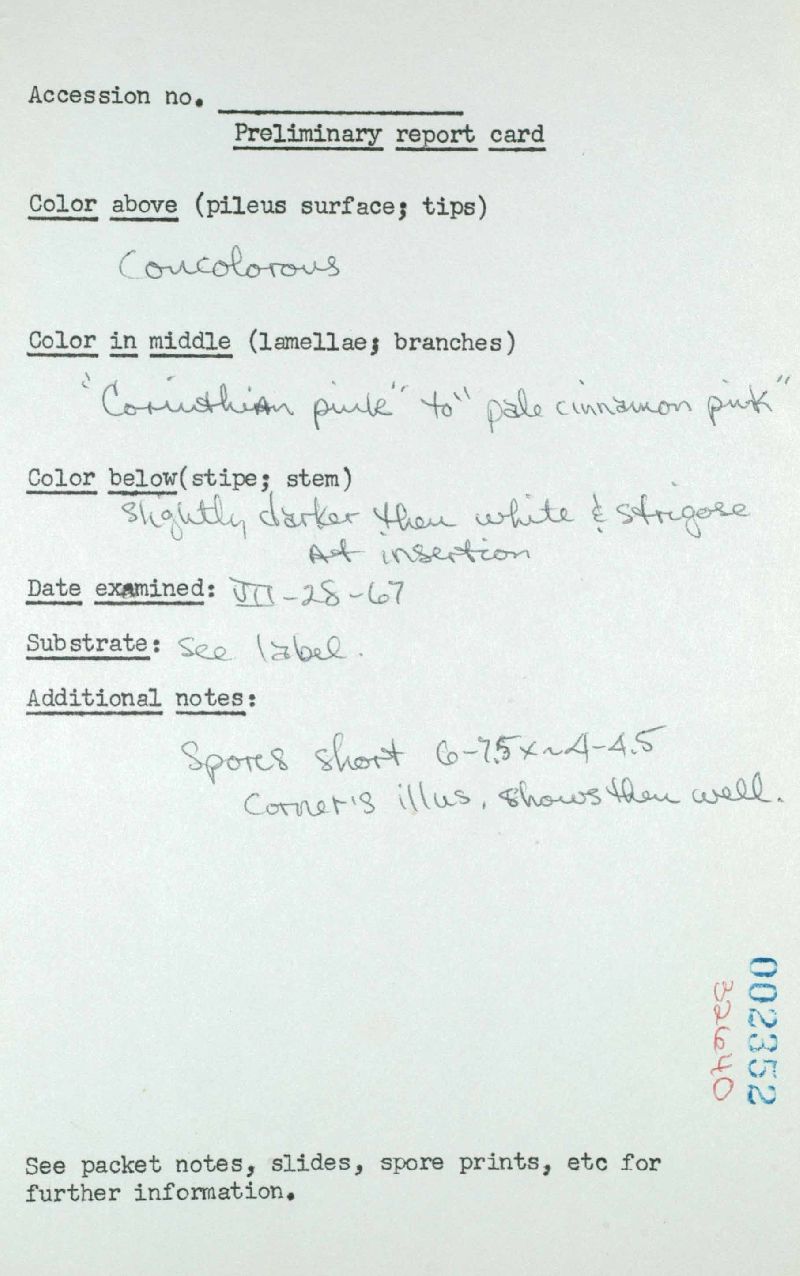 Accession no. ____________
Preliminary report card
Color above (pileus surface; tips)
Concolorous
Color in middle (lamellae; branches)
"Corinthian pink" to "pale cinnamon pink"
Color below(stipe; stem)
Slightly darker then white & strigose
At insertion
Date examined: VII-28-67
Substrate: See label.
Additional notes:
Spores short 6-7.5 x ~4-4.5
Corner's illus. shows them well.
002352
32640
See packet notes, slides, spore prints, etc for
further information.